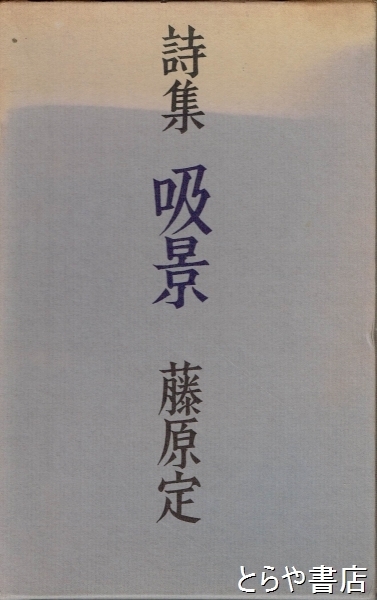 詩集 吸景 藤原定
とらや書店